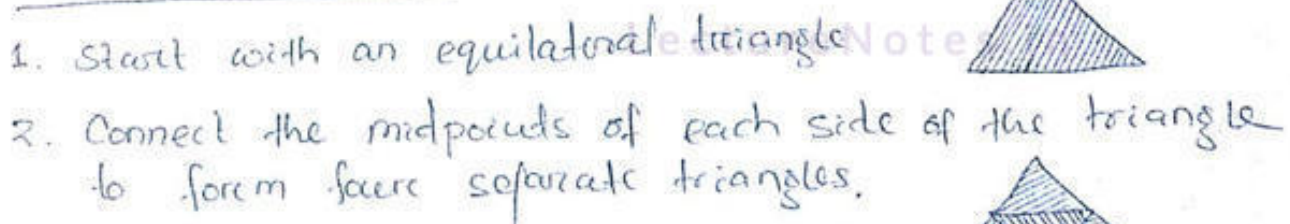 1. Start with an equilateral triangle
2. Connect the midpoints of each side of the triangle
to form four separate triangles.